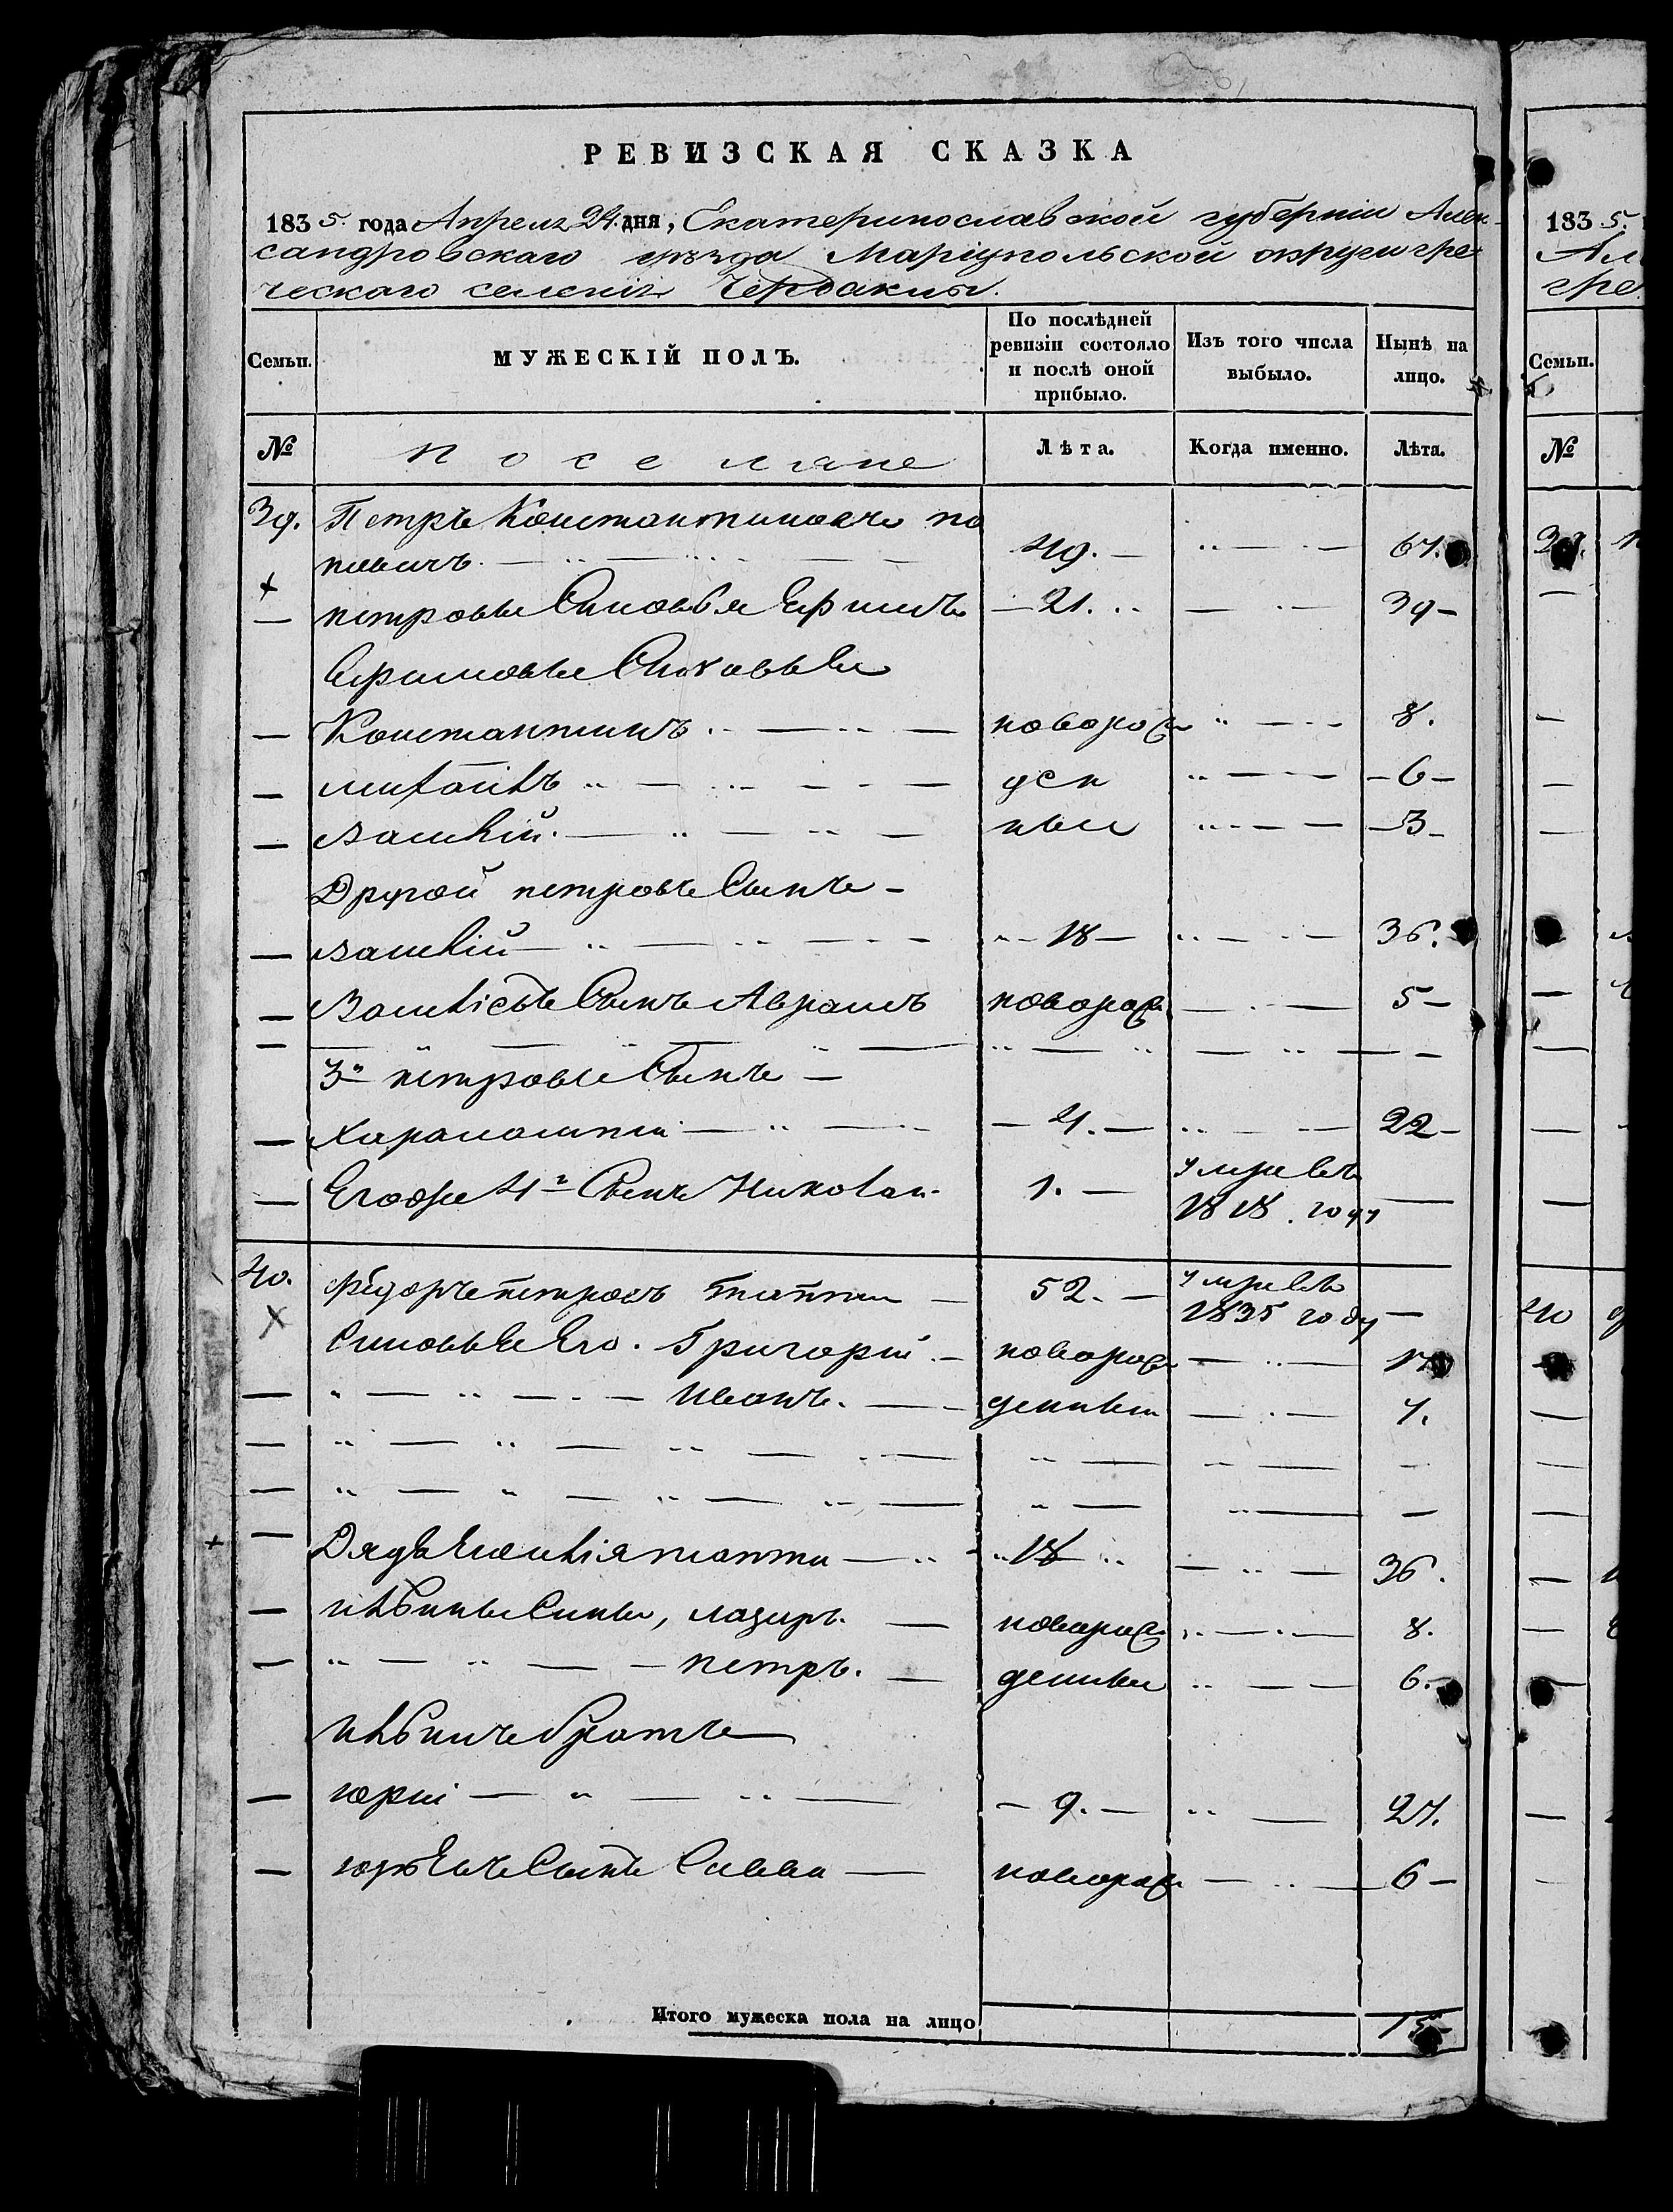 РЕВИЗСКАЯ СКАЗКА
1835. года Апреля 24. дня, Екатеринославской губерніи Алек-
сандровскаго уѣзда Маріупольской округи гре
ческаго селенія Чердаклы.
Семьи. МУЖЕСКІЙ ПОЛЪ. По послѣдней ревизіи состояло и послѣ оной прибыло. Изъ того числа выбыло. Нынѣ на лицо.
№ Поселяне Лѣта. Когда именно. Лѣта.
39. Петръ Константиновъ по
повичъ. 49. 67.
петровы Синовья Ефимъ 21. 39
Ефимовы Синовья
Константинъ новорож 8.
ден 6
ные 3
Другой петровъ Сынъ
18 36.
Сынъ Авраамъ новорож 5
3й петровъ Сынъ
Харалампій 4. 22
Егоже 4й Сынъ Николай 1. умре въ
1818. году
40. Федоръ петровъ 52. умре въ
1835 году
Синовья Его. Григорій новорож 17
Иванъ. денные 7.
Дядя 18 36.
лазарь. новорож 8.
петръ. денные 6.
братъ
юрій 9. 27.
Сынъ Савва новорож 6
Итого мужеска пола на лицо 15
1835.
Ал
гре
Семьи.
№
39.
40